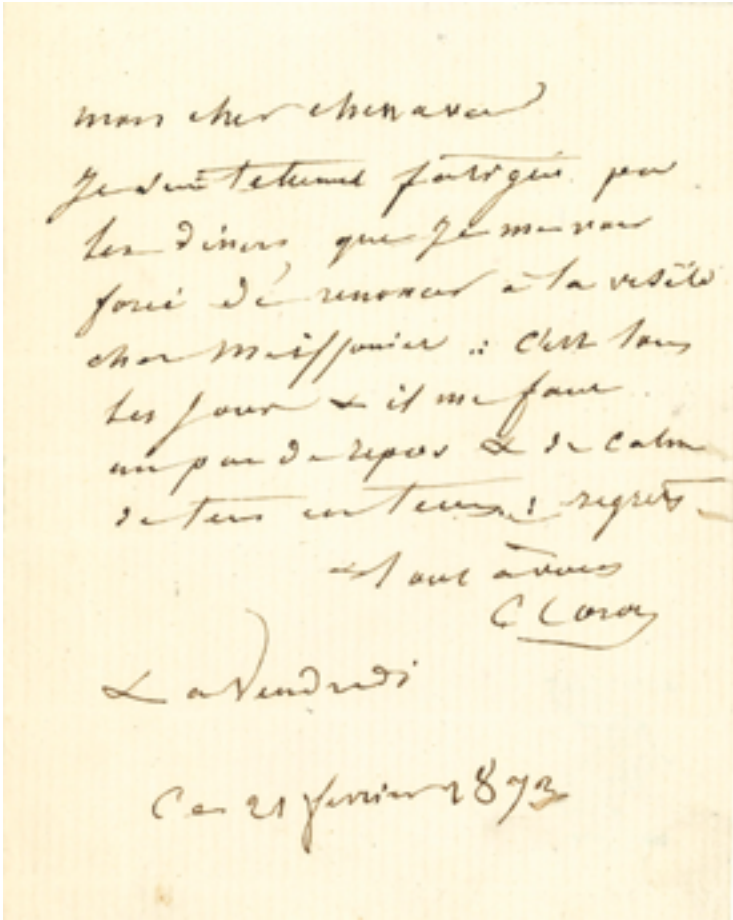 mon cher chenavard
Je suis tellement fatigué par
les diners, que je me vois
forcé de renoncer à la visite
cher Meissonier : c'est tous
les jours & il me faut
un peu de repos & de calme
de tems en tems : regrets
& tout à vous
C Corot
& a Vendredi
Ce 21 fevrier 1873